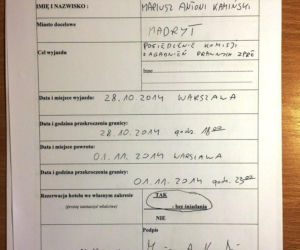 IMIĘ I NAZWISKO : MARIUSZ ANTONI KAMIŃSKI
Miasto docelowe MADRYT
Cel wyjazdu POSIEDZENIE KOMISJI
ZAGADNIEŃ PRAWNYCH ZPRE
Inne
Data i miejsce wyjazdu: 28.10.2014 WARSZAWA
Data i godzina przekroczenia granicy:
28.10.2014 godz. 18:00
Data i miejsce powrotu:
01.11.2014 WARSZAWA
Data i godzina przekroczenia granicy:
01.11.2014 godz. 23:00
Rezerwacja hotelu we własnym zakresie TAK
(proszę zaznaczyć właściwe) - bez śniadania
NIE
Podpis